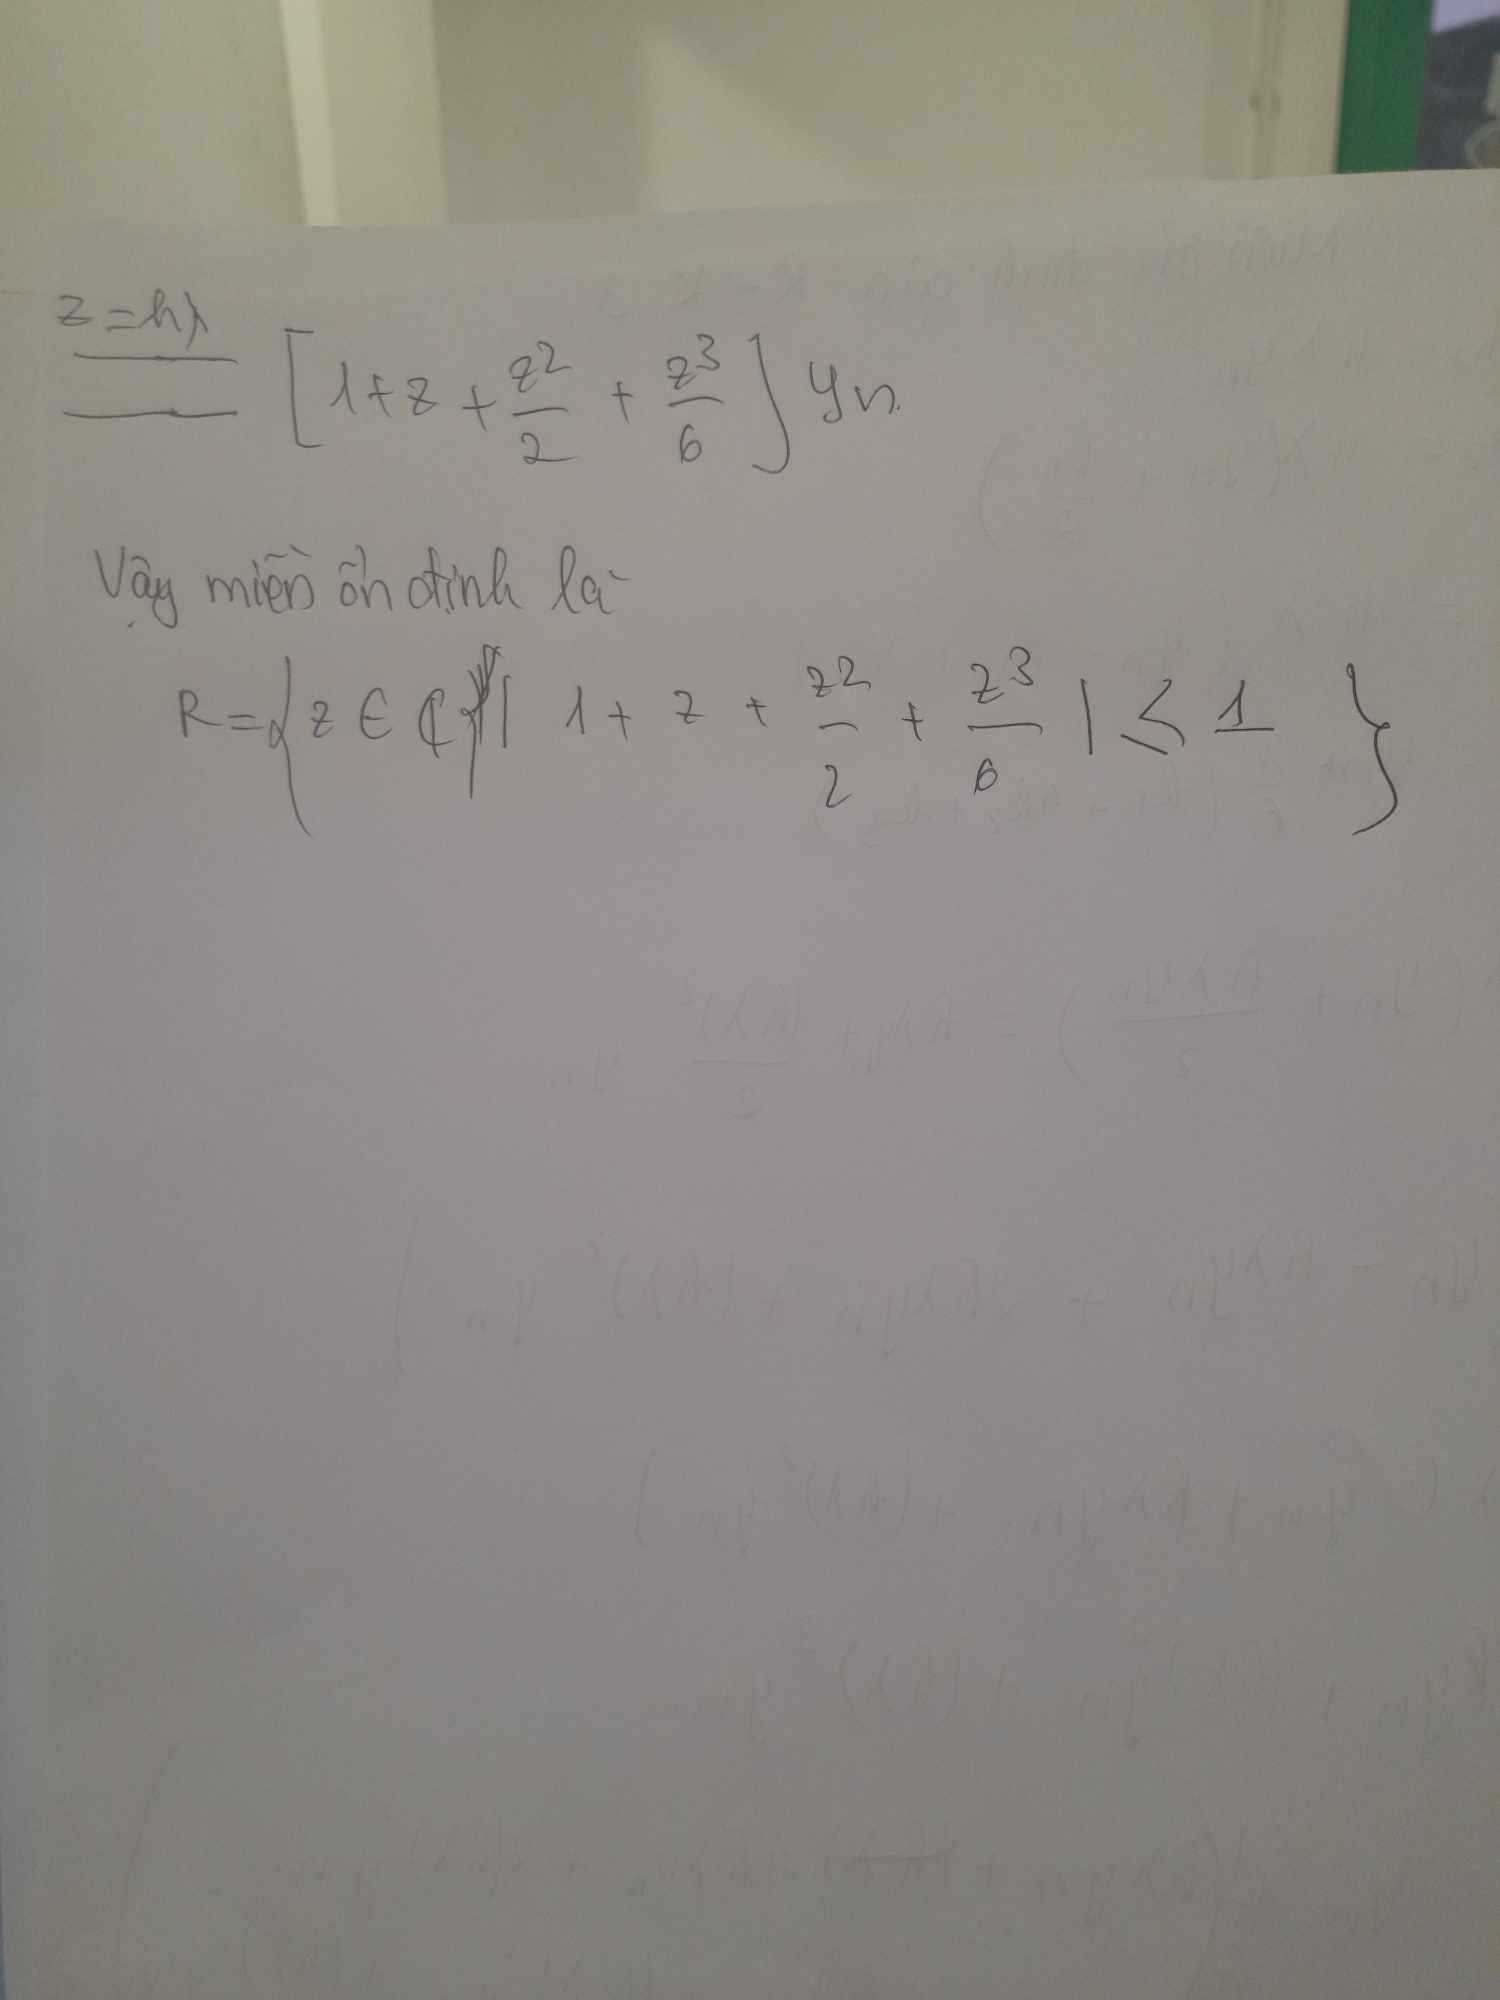 z = hλ
= [1 + z + z²/2 + z³/6] yn.
Vậy miền ổn định là
R = { z ∈ ₵ | | 1 + z + z²/2 + z³/6 | ≤ 1 }